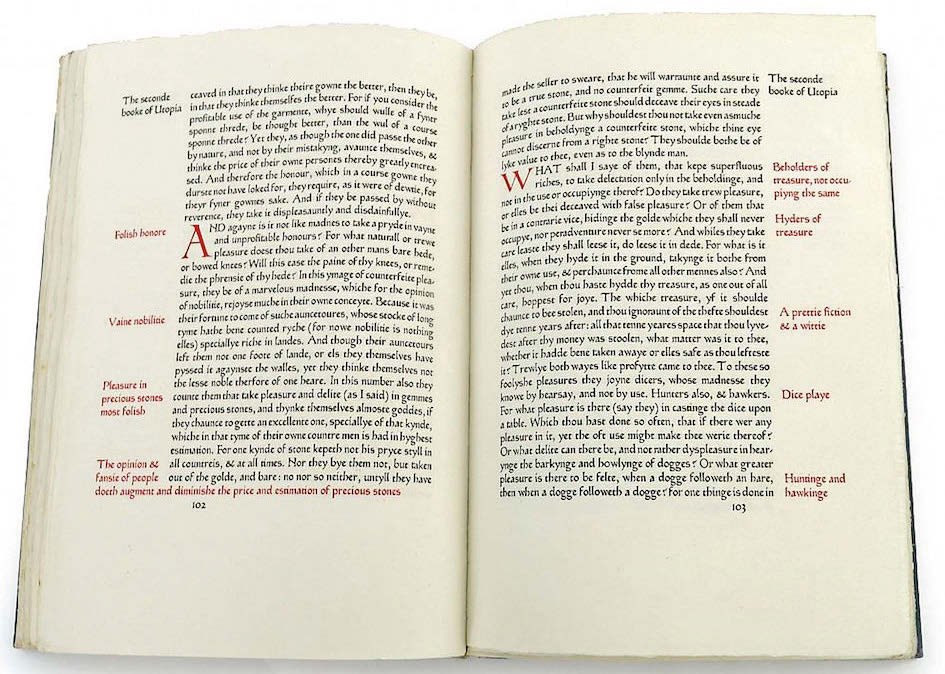 The seconde
booke of Utopia
ceaved in that they thinke theire gowne the better, then they be,
in that they thinke themselfes the better. For if you consider the
profitable use of the garmente, whye should wulle of a fyner
sponne threde, be thought better, than the wul of a course
sponne threde? Yet they, as though the one did passe the other
by nature, and not by their mistakyng, avaunce themselves, &
thinke the price of their owne persones thereby greatly encrea-
sed. And therefore the honour, which in a course gowne they
durste not have loked for, they require, as it were of dewtie, for
theyr fyner gownes sake. And if they be passed by without
reverence, they take it displeasauntly and disdainfullye.
Folish honore
AND agayne is it not like madnes to take a pryde in vayne
and unprofitable honours? For what naturall or trewe
pleasure doest thou take of an other mans bare hede,
or bowed knees? Will this ease the paine of thy knees, or reme-
die the phrensie of thy hede? In this ymage of counterfeite plea-
sure, they be of a marvelous madnesse, whiche for the opinion
of nobilitie, rejoyse muche in their owne conceyte. Because it was
Vaine nobilitie
their fortune to come of suche auncetoures, whose stocke of long
tyme hathe bene counted ryche (for nowe nobilitie is nothing
elles) speciallye riche in landes. And though their auncetours
left them not one foote of lande, or els they themselves have
pyssed it agaynste the walles, yet they thinke themselves not
the lesse noble therfore of one heare. In this number also they
Pleasure in
precious stones
most folish
counte them that take pleasure and delite (as I said) in gemmes
and precious stones, and thynke themselves almoste goddes, if
they chaunce to gette an excellente one, speciallye of that kynde,
whiche in that tyme of their owne countre men is had in hyghest
estimation. For one kynde of stone kepeth not his pryce styll in
The opinion &
fansie of people
doeth augment and diminishe the price and estimation of precious stones
all countreis, & at all times. Nor they bye them not, but taken
out of the golde, and bare: no nor so neither, untyll they have
102
made the seller to sweare, that he will warraunte and assure it
to be a true stone, and no counterfeit gemme. Suche care they
take lese a counterfeite stone should deceave their eyes in steade
of a ryghte stone. But why shouldest thou not take even asmuche
pleasure in beholdynge a counterfeite stone, whiche thine eye
cannot discerne from a righte stone? They shoulde bothe be of
lyke value to thee, even as to the blynde man.
The seconde
booke of Utopia
WHAT shall I saye of them, that kepe superfluous
riches, to take delectation only in the beholdinge, and
not in the use or occupiynge therof? Do they take trew pleasure,
or elles be thei deceaved with false pleasure? Or of them that
be in a contrarie vice, hidinge the golde whiche they shall never
occupye, nor peradventure never se more? And whiles they take
care leaste they shall leese it, do leese it in dede. For what is it
elles, when they hyde it in the ground, takynge it bothe from
their owne use, & perchaunce frome all other mennes also? And
yet thou, when thou haste hydde thy treasure, as one out of all
care, hoppest for joye. The whiche treasure, yf it shoulde
chaunce to bee stolen, and thou ignoraunt of the thefte shouldest
dye tenne years after: all that tenne yeares space that thou lyve-
dest after thy money was stoolen, what matter was it to thee,
whether it hadde bene taken awaye or elles safe as thou lefteste
it? Trewlye both wayes like profytte came to thee. To these so
foolyshe pleasures they joyne dicers, whose madnesse they
knowe by hearsay, and not by use. Hunters also, & hawkers.
For what pleasure is there (say they) in castinge the dice upon
a table. Which thou hast done so often, that if there wer any
pleasure in it, yet the oft use might make thee werie therof?
Or what delite can there be, and not rather dyspleasure in hear-
ynge the barkynge and howlynge of dogges? Or what greater
pleasure is there to be felte, when a dogge followeth an hare,
then when a dogge followeth a dogge? for one thinge is done in
Beholders of
treasure, not occu-
piyng the same
Hyders of
treasure
A prettie fiction
& a wittie
Dice playe
Huntinge and
hawkinge
103